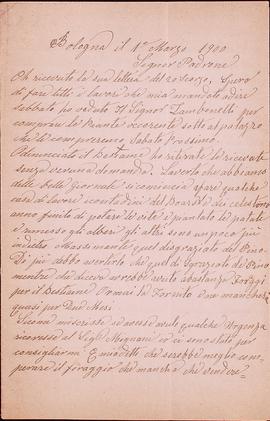 Bologna il 1° Marzo 1900
Signor Padrone
Oh ricevuto la sua lettera del 20 scorso, Spero
di fare tutti i lavori che mia mandato a dire
sabbato ho veduto Il Signor Zambonelli per
comprare le Piante occorente sotto al palazzo
che le comprerem Sabato Prossimo.
il Bestiame ho ritirate le ricevute
senza veruna domanda. Lavorto che abbiamo
delle belle giornate si comincia afare qualche
cosa di lavoro i contadini del e celestino
anno finito di potare le vite e piantato le patate
e rimesso gli alberi gli altri sono un poco più
indietro Massimamente quel disgraziato del Pino
Di più debbo avertirlo che quel disgraziato de Pino
mentre che diceva averebbe avuto abastanza Foragi
per il Bestiame Ormai la Fornito è ne mancherà
quasi per Due Mesi.
Sicome mi scriste se avessi avuto qualche Urgenza
ricoressi al Sigr Mignani ier ci sono stato per
consigliarmi E mi a detti che serebbe meglio com-
perare il foraggio che mancha che vendere